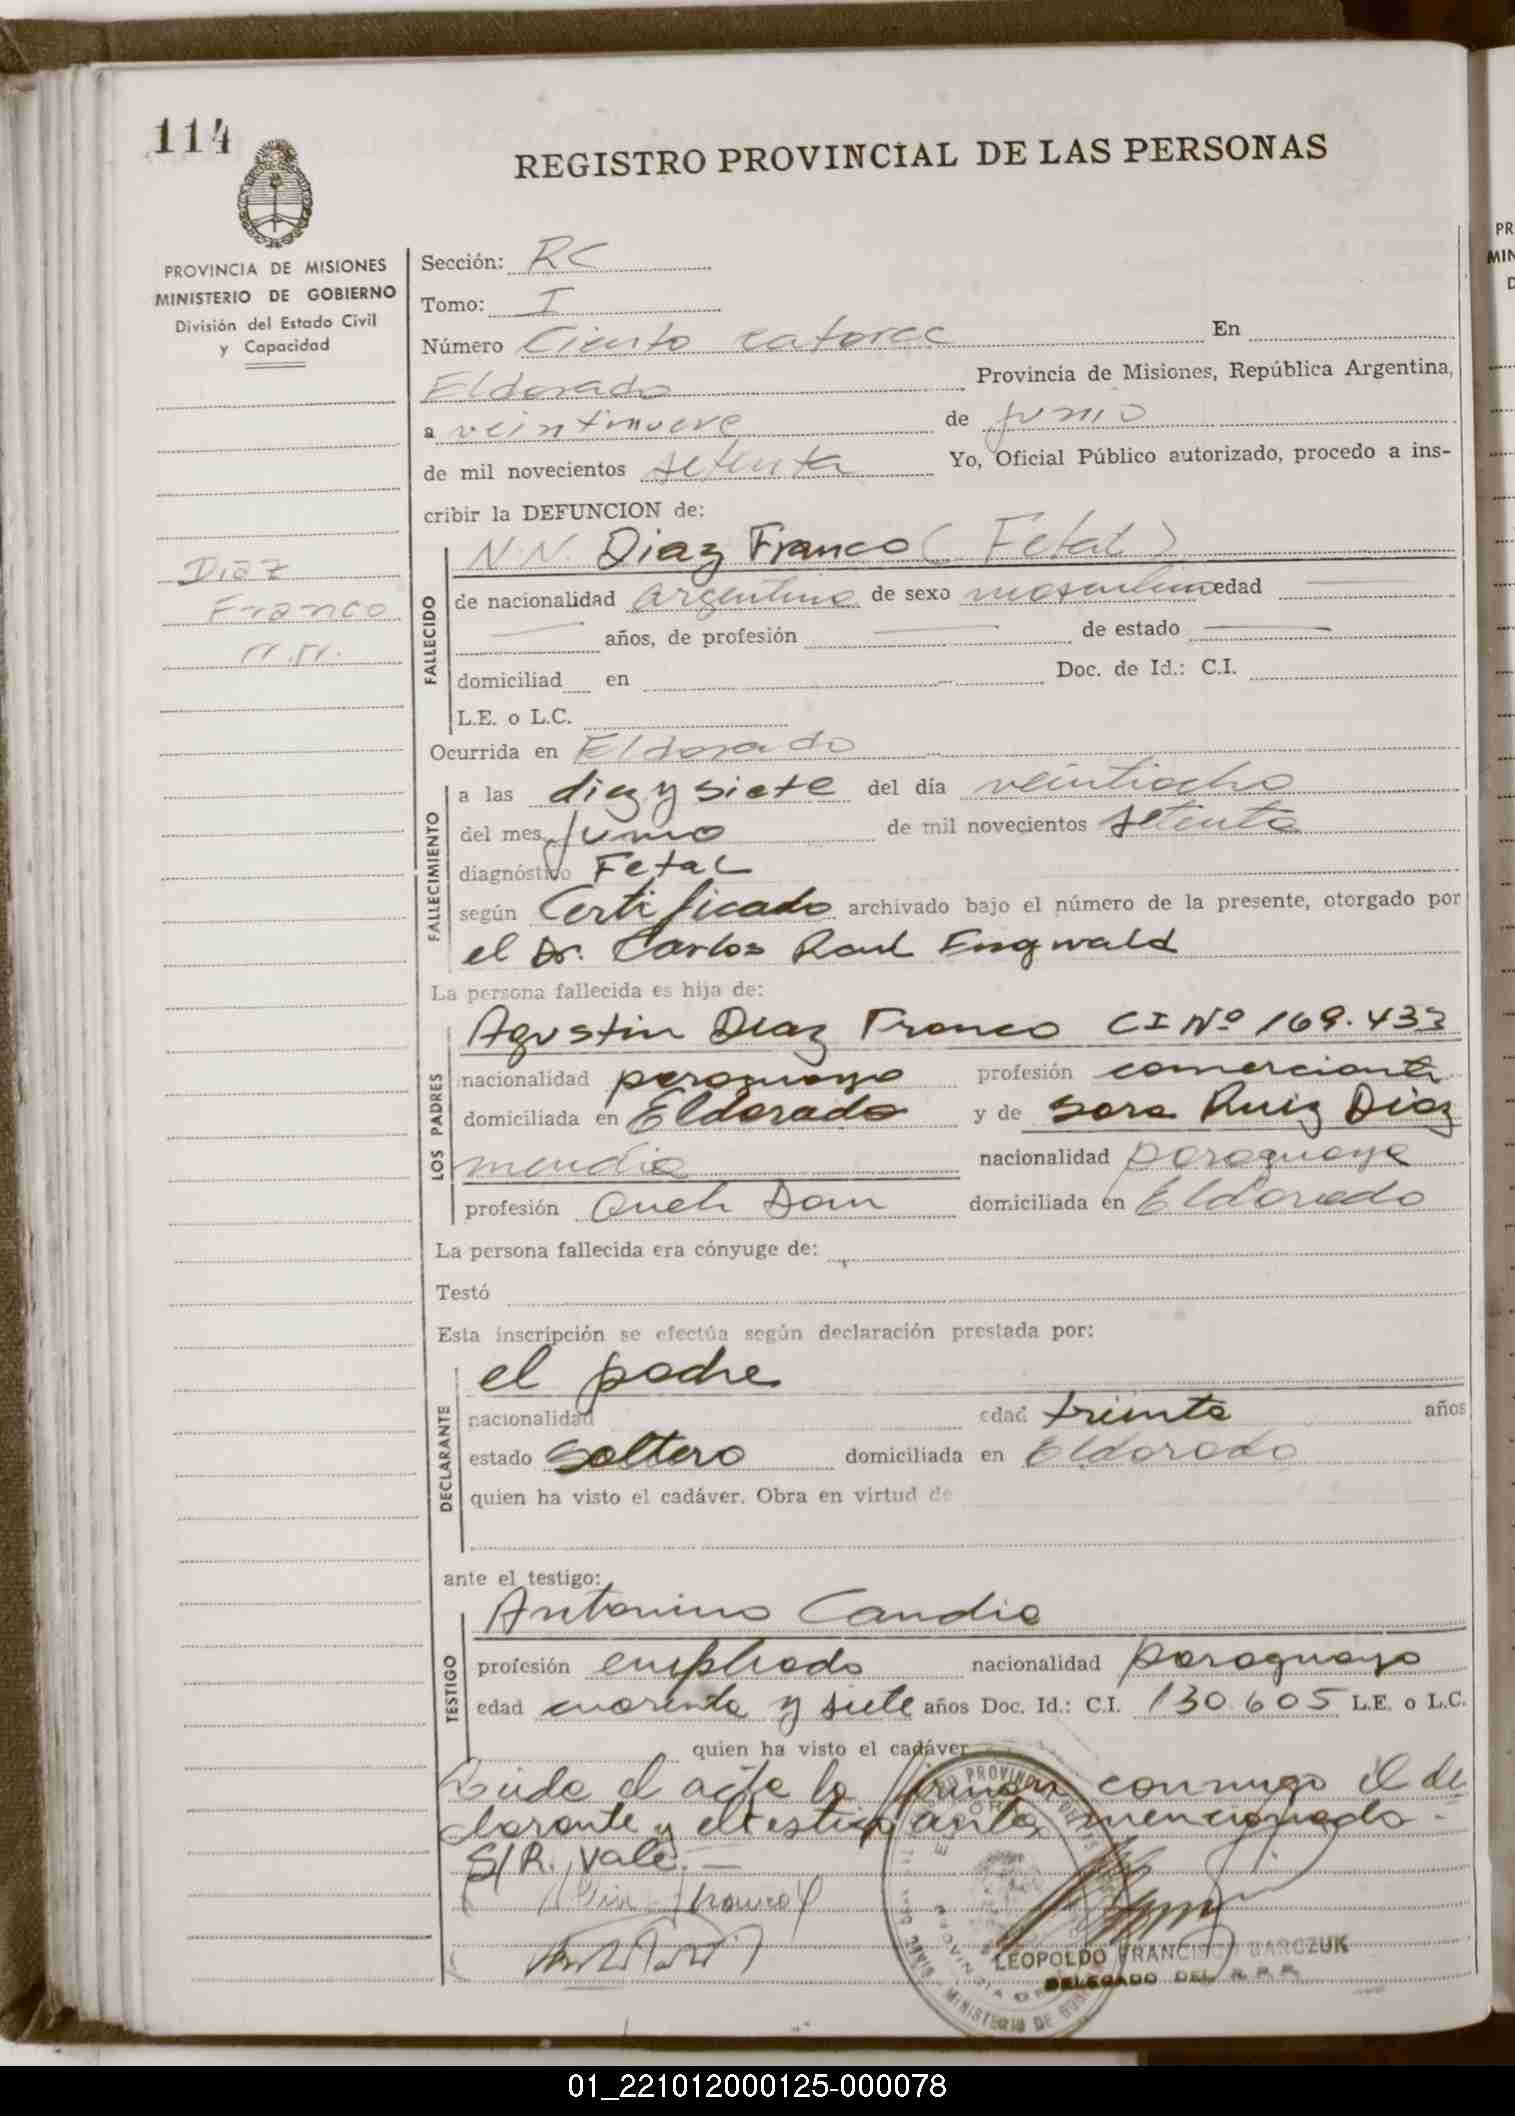 114
REGISTRO PROVINCIAL DE LAS PERSONAS
PROVINCIA DE MISIONES
MINISTERIO DE GOBIERNO
División del Estado Civil
y Capacidad
Diaz
Franco
N.N.
Sección: RC
Tomo: I
Número Ciento catorce En
Eldorado Provincia de Misiones, República Argentina,
a veintinueve de junio
de mil novecientos setenta Yo, Oficial Público autorizado, procedo a ins-
cribir la DEFUNCION de:
FALLECIDO
N.N. Diaz Franco (Fetal)
de nacionalidad argentino de sexo masculino edad
años, de profesión de estado
domiciliad en Doc. de Id.: C.I.
L.E. o L.C.
Ocurrida en Eldorado
FALLECIMIENTO
a las diez y siete del día veintiocho
del mes junio de mil novecientos setenta
diagnóstico Fetal
según Certificado archivado bajo el número de la presente, otorgado por
el Dr. Carlos Raul Engwald
La persona fallecida es hija de:
LOS PADRES
Agustin Diaz Franco CI Nº 169.433
nacionalidad paraguayo profesión comerciante
domiciliada en Eldorado y de Sara Ruiz Diaz
mendia nacionalidad paraguaya
profesión Queh Dom domiciliada en Eldorado
La persona fallecida era cónyuge de:
Testó
Esta inscripción se efectúa según declaración prestada por:
DECLARANTE
el padre
nacionalidad edad treinta años
estado Soltero domiciliada en Eldorado
quien ha visto el cadáver. Obra en virtud de
ante el testigo:
TESTIGO
Antonino Candia
profesión empleado nacionalidad paraguayo
edad cuarenta y siete años Doc. Id.: C.I. 130.605 L.E. o L.C.
quien ha visto el cadáver
Leida el acta la firman conmigo el de
clarante y el testigo antes mencionado.
S/R. Vale. —
LEOPOLDO FRANCISCO BARCZUK
DELEGADO DEL R.P.P.
01_221012000125-000078